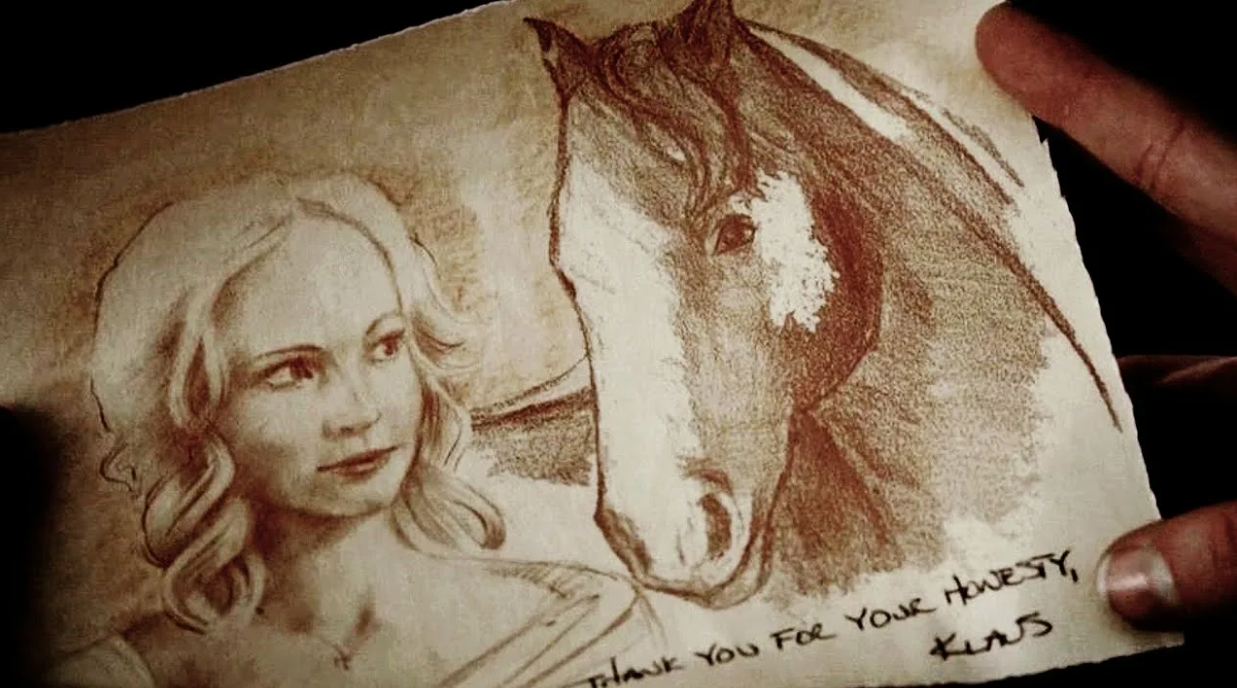 THANK YOU FOR YOUR HONESTY,
KLAUS